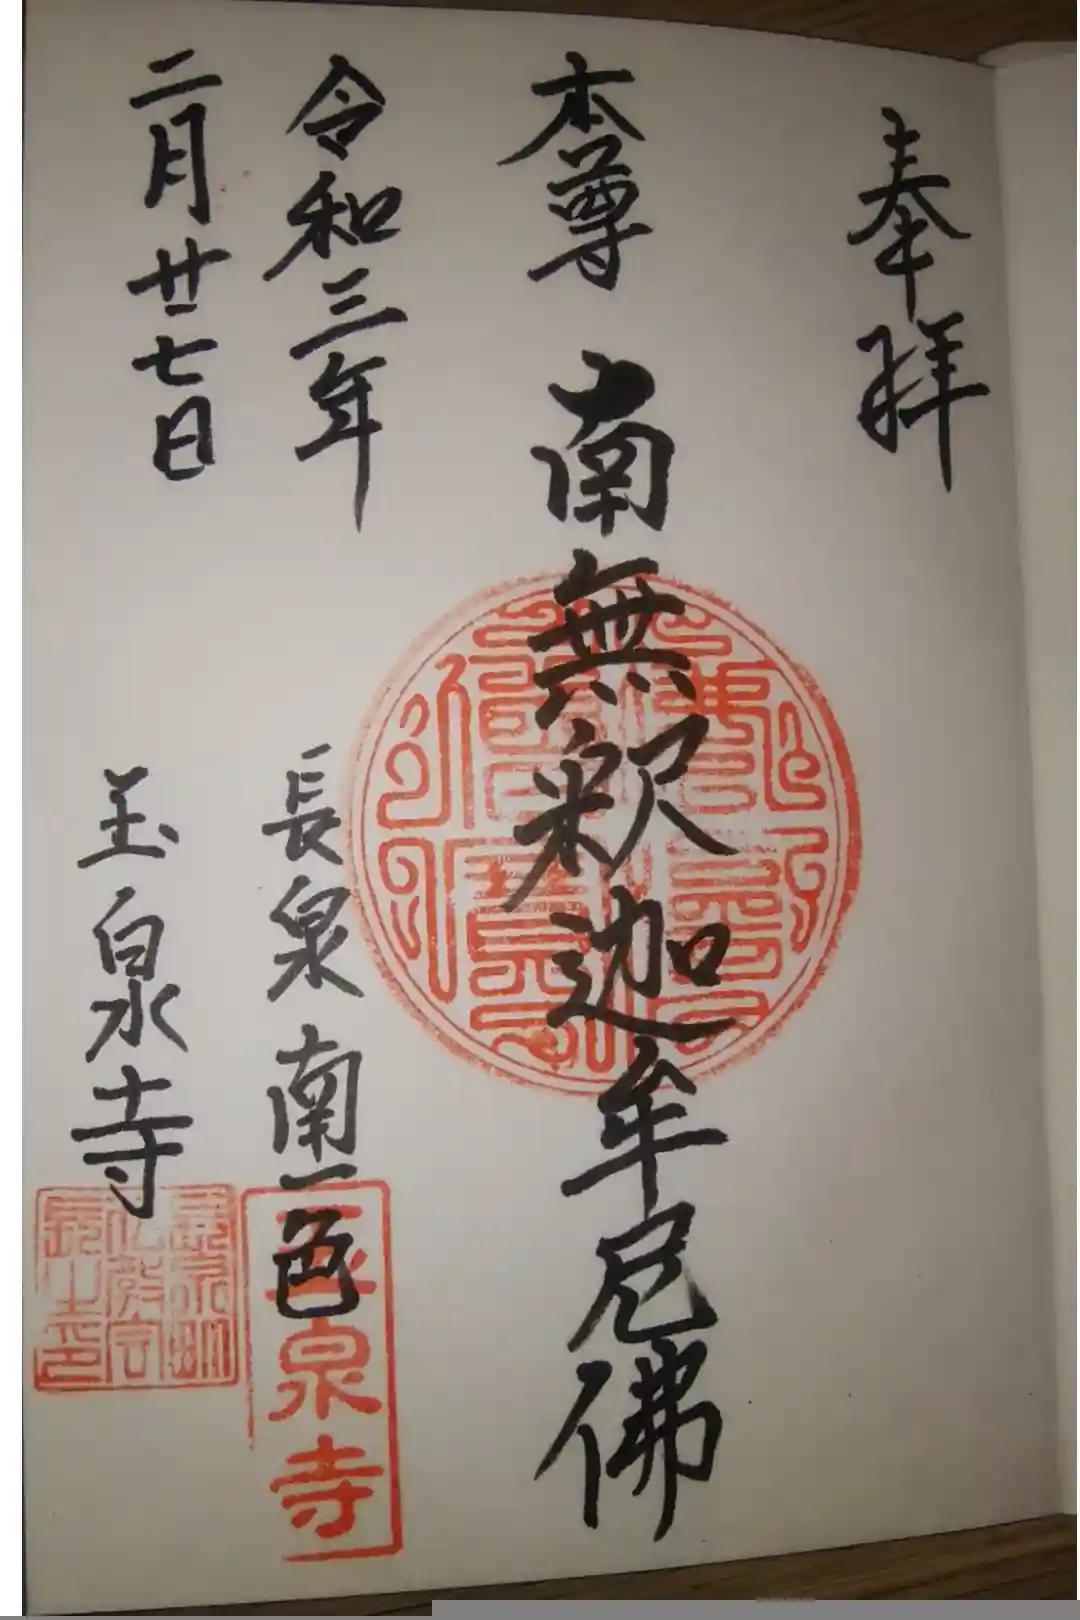 奉拝
本尊 南無釈迦牟尼佛
令和三年
二月廿七日
長泉 南一色
玉泉寺
玉泉寺